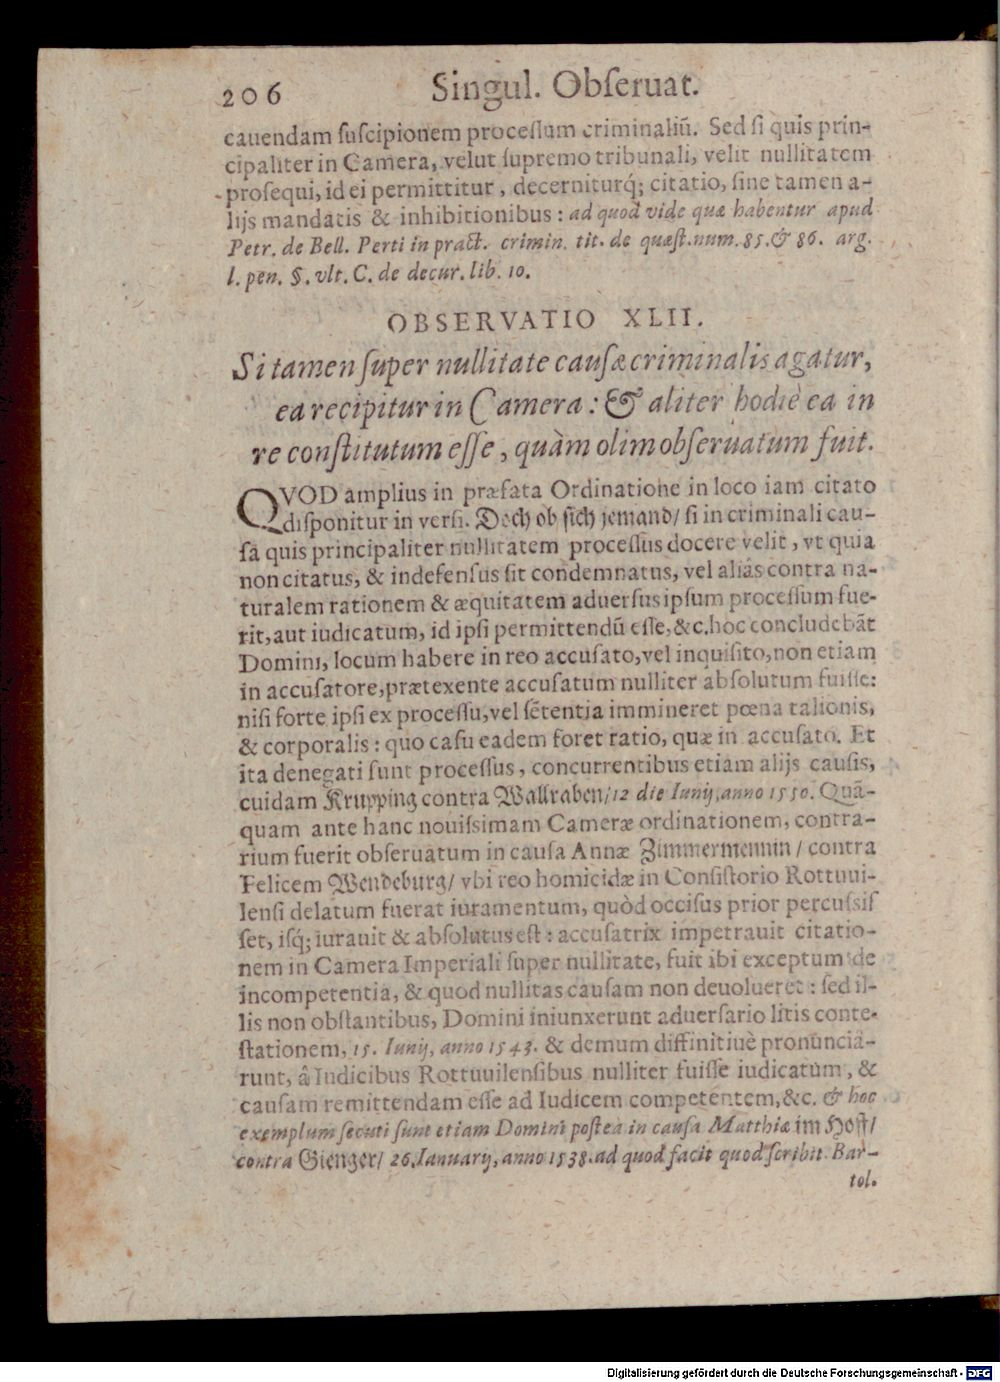 206 Singul. Obſeruat.
cauendam ſuſcipionem proceſſum criminaliū. Sed ſi quis prin-
cipaliter in Camera, velut ſupremo tribunali, velit nullitatem
proſequi, id ei permittitur, decerniturq́; citatio, ſine tamen a-
lijs mandatis & inhibitionibus: ad quod vide quæ habentur apud
Petr. de Bell. Perti in pract. crimin. tit. de quæſt. num. 85. & 86. arg.
l. pen. §. vlt. C. de decur. lib. 10.
OBSERVATIO XLII.
Si tamen ſuper nullitate cauſæ criminalis agatur,
ea recipitur in Camera: & aliter hodie ea in
re conſtitutum eſſe, quàm olim obſeruatum fuit.
QVOD amplius in præfata Ordinatione in loco iam citato
diſponitur in verſi. Doch ob ſich jemand/ ſi in criminali cau-
ſa quis principaliter nullitatem proceſſus docere velit, vt quia
non citatus, & indefenſus ſit condemnatus, vel aliàs contra na-
turalem rationem & æquitatem aduerſus ipſum proceſſum fue-
rit, aut iudicatum, id ipſi permittendū eſſe, &c. hoc concludebāt
Domini, locum habere in reo accuſato, vel inquiſito, non etiam
in accuſatore, prætexente accuſatum nulliter abſolutum fuiſſe:
niſi forte ipſi ex proceſſu, vel ſētentia immineret pœna talionis,
& corporalis: quo caſu eadem foret ratio, quæ in accuſato. Et
ita denegati ſunt proceſſus, concurrentibus etiam alijs cauſis,
cuidam Krupping contra Wallraben/ 12 die Iunij, anno 1550. Quā-
quam ante hanc nouiſsimam Cameræ ordinationem, contra-
rium fuerit obſeruatum in cauſa Annæ Zimmermennin / contra
Felicem Wendeburg/ vbi reo homicidæ in Conſiſtorio Rottuui-
lenſi delatum fuerat iuramentum, quòd occiſus prior percuſsiſ
ſet, iſq́; iurauit & abſolutus eſt: accuſatrix impetrauit citatio-
nem in Camera Imperiali ſuper nullitate, fuit ibi exceptum de
incompetentia, & quod nullitas cauſam non deuolueret: ſed il-
lis non obſtantibus, Domini iniunxerunt aduerſario litis conte-
ſtationem, 15. Iunij, anno 1543. & demum diffinitiuè pronuncia-
runt, â Iudicibus Rottuuilenſibus nulliter fuiſſe iudicatum, &
cauſam remittendam eſſe ad Iudicem competentem, &c. & hoc
exemplum ſecuti ſunt etiam Domini poſtea in cauſa Matthiæ im Hoff/
contra Gienger/ 26. Ianuarij, anno 1538. ad quod facit quod ſcribit Bar-
tol.
Digitalisierung gefördert durch die Deutsche Forschungsgemeinschaft - DFG